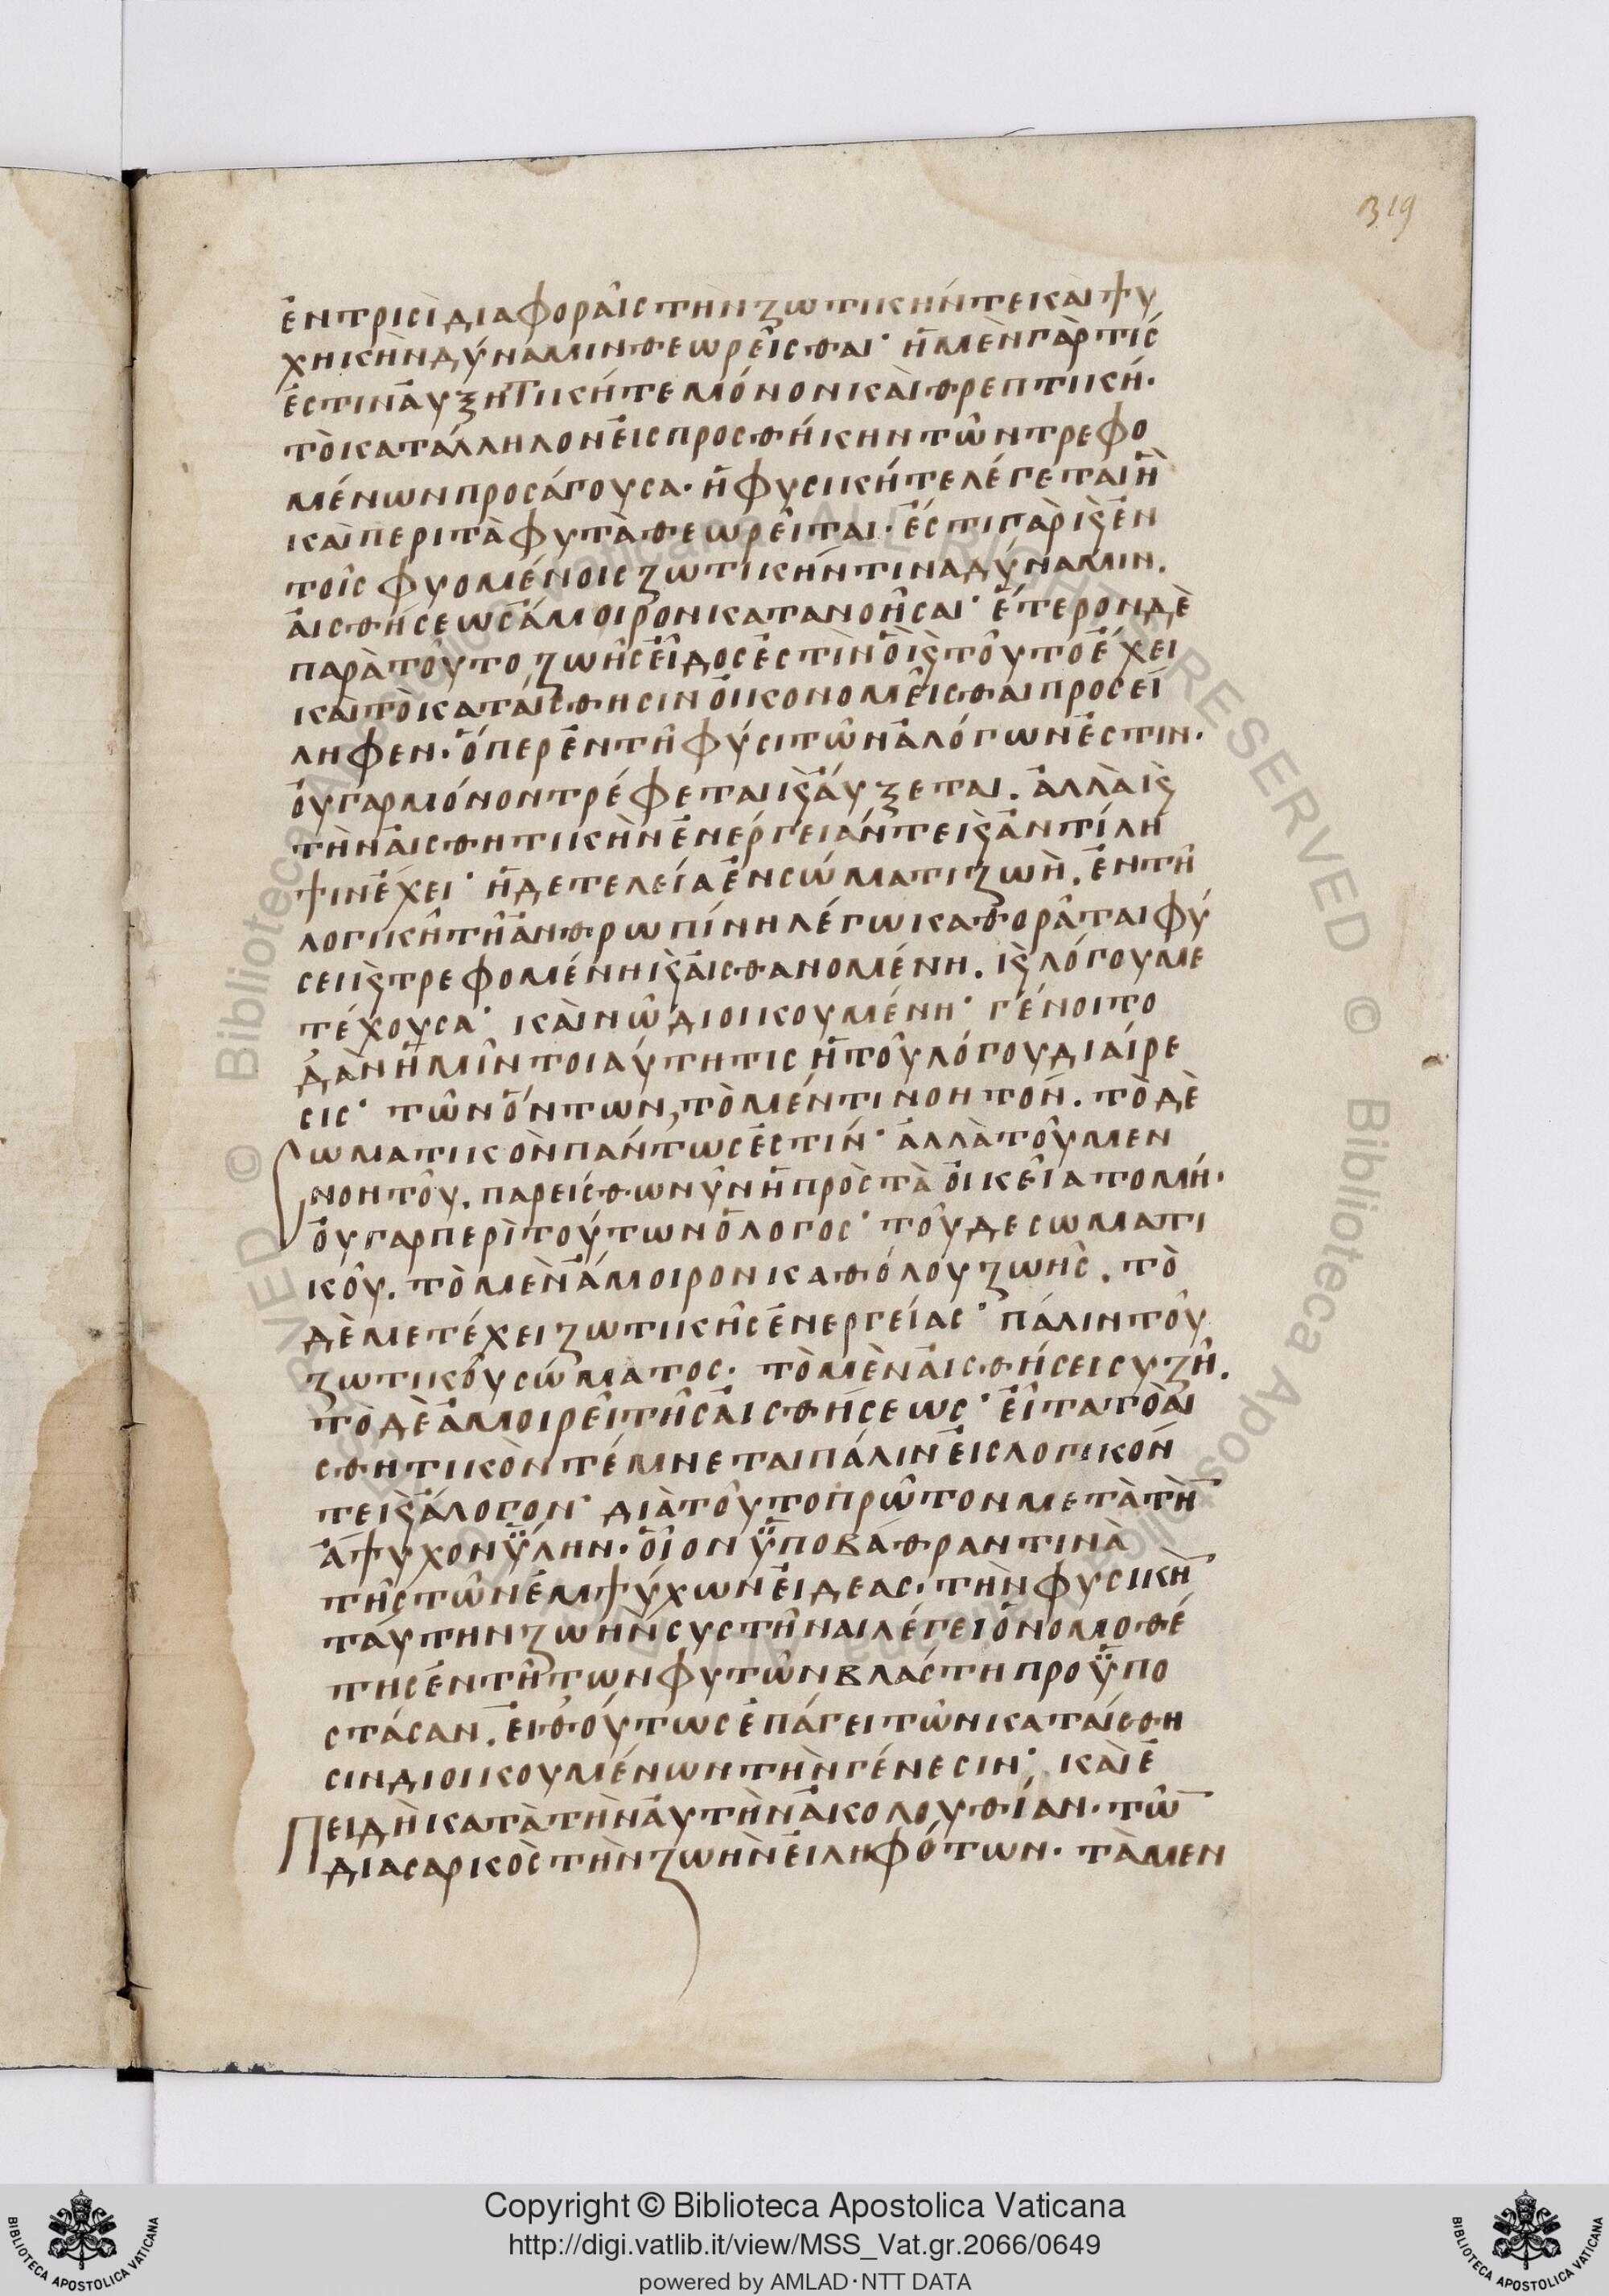 319
ἐν τρισὶ διαφοραῖς τὴν ζωτικήν τε καὶ ψυ
χηικὴν δύναμιν θεωρεῖσθαι· ἡ μὲν γὰρ τίς
ἐστιν αὐξητικήτε μόνον καὶ θρεπτική·
τὸ κατάλληλον εἰς προσθήκην τῶν τρεφο
μένων προσάγουσα· ἡ φυσικήτε λέγεται ἣ
καὶ περὶ τὰ φυτὰ θεωρεῖται· ἔστι γὰρ ϗ ἐν
τοῖς φυομένοις ζωτικήν τινα δύναμιν.
αἰσθήσεως ἄμοιρον κατανοῆσαι· ἕτερον δὲ
παρὰ τοῦτο, ζωῆς εἶδος ἐστὶν ὃ ϗ τοῦτο ἔχει
καὶ τὸ κατ αίσθησιν οἰκονομεῖσθαι προσεί
ληφεν· ὅπερ ἐν τῆ φύσι τῶν ἀλόγων ἐστιν·
οὐ γαρ μόνον τρέφεται ϗ αὔξεται. ἀλλὰ ϗ
τὴν αἰσθητικὴν ἐνέργειάν τε ϗ ἀντίλη
ψιν ἔχει· ἡ δε τελεία ἐν σώματι ζωὴ. ἐν τῆ
λογικῆ τῆ ἀνθρωπίνη λέγω καθορᾶται φύ
σει ϗ τρεφομένη ϗ αἰσθανομένη. ϗ λόγου με
τέχουσα· καὶ νῶ διοικουμένη· γένοιτο
δ ὰν ἡμῖν τοιαύτη τις ἡ τοῦ λόγου διαίρε
σις· τῶν ὄντων, τὸ μέν τι νοητόν. τὸ δὲ
Σωματικὸν πάντως ἐστίν· ἀλλὰ τοῦ μεν
νοητοῦ. παρείσθω νῦν ἡ πρὸς τὰ οἰκεῖα τομή·
οὐ γαρ περὶ τούτων ὁ λογος· τοῦ δε σωματι
κοῦ. τὸ μὲν ἄμοιρον καθόλου ζωῆς. τὸ
δὲ μετέχει ζωτικῆς ἐνεργείας· πάλιν τοῦ
ζωτικοῦ σώματος· τὸ μὲν αἰσθήσει συζῆ.
τὸ δὲ ἀμοιρεῖ τῆς αἰσθήσεως· εἶτα τὸ αἰ
σθητικὸν τέμνεται πάλιν εἰς λογικόν
τε ϗ ἄλογον· διὰ τοῦτο πρῶτον μετὰ τὴ̅
ἄψυχον ὕλην· οἷον ὑποβάθραν τινὰ
τῆς τῶν ἐμψύχων εἰδεας· τὴν φυσικὴ̅
ταύτην ζωὴν συστῆναι λέγει ὁ νομοθέ
της ἐν τῆ των φυτῶν βλάστη προϋπο
στάσαν. εἶθ ούτως ἐπάγει τῶν κατ αίσθη
σιν διοικουμένων τὴν γένεσιν· καὶ ἐ
Πειδὴ κατὰ τὴν αὐτὴν ἀκολουθίαν· τῶ̅
δια σαρκὸς τὴν ζωὴν εἰληφότων· τὰ μεν
Copyright © Biblioteca Apostolica Vaticana
http://digi.vatlib.it/view/MSS_Vat.gr.2066/0649
powered by AMLAD·NTT DATA
BIBLIOTECA APOSTOLICA VATICANA
BIBLIOTECA APOSTOLICA VATICANA